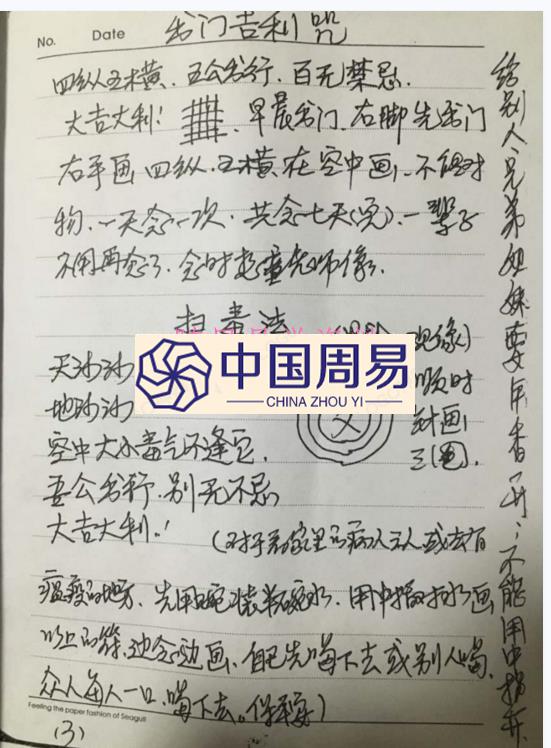 No.
Date
出门吉利咒
四纵五横.五公出行.百无禁忌.
大吉大利!早晨出门.右脚先出门
右手画四纵.五横.在空中画,不能对
物.一天念一次.共念七天(完).一辈子
不用再念了.念时想童先师像.
扫毒法
观像)
天沙沙
顺时
地沙沙
针画
空中大小毒气不逢它.
三圈.
吾公出行.别无不忌
大吉大利!
(对于家里的病人 或去有
瘟疫的地方.先用碗装 碗水.用中指对水画
以上的符.边念边画.自己先喝下去或别人喝.
众人每人一口.喝下去.
给别人兄弟姐妹要 香 不能用中指
Feeling the paper fashion of Seagull
(3)
中国周易
CHINA ZHOU YI